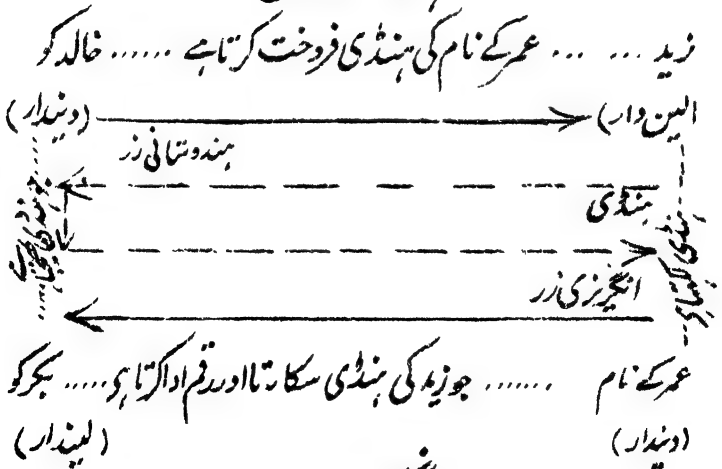 زید ... ... عمر کے نام کی ہنڈی فروخت کرتا ہے ...... خالد کو
(لین دار) (دیندار)
ہندوستانی زر
ہنڈی
انگریزی زر
ہنڈی لکھتا ہے
عمر کے نام ...... جو زید کی ہنڈی سکارتا اور رقم ادا کرتا ہی ..... بکر کو
(دیندار) (لیندار)